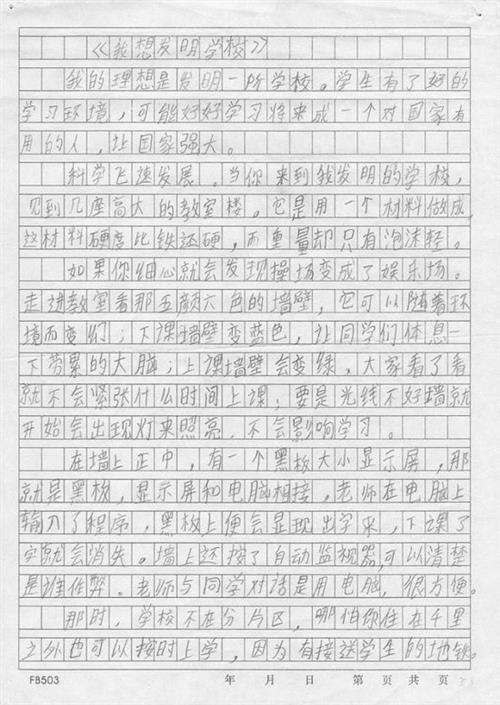 《我想发明学校》
我的理想是发明一所学校。学生有了好的
学习环境，可能好好学习将来成一个对国家有
用的人，让国家强大。
科学飞速发展。当你来到我发明的学校，
见到几座高大的教室楼。它是用一个材料做成，
这材料硬度比铁还硬，而重量却只有泡沫轻。
如果你细心就会发现操场变成了娱乐场。
走进教室看那五颜六色的墙壁，它可以随着环
境而变幻；下课墙壁变蓝色，让同学们休息一
下劳累的大脑；上课墙壁会变绿，大家看了看
就不会紧张什么时间上课；要是光线不好墙就
开始会出现灯来照亮，不会影响学习。
在墙上正中，有一个黑板大小显示屏，那
就是黑板，显示屏和电脑相接，老师在电脑上
输入了程序，黑板上便会显现出字来，下课了
字就会消失。墙上还按了自动监视器，可以清楚
是谁作弊。老师与同学对话是用电脑，很方便。
那时，学校不在分片区，哪怕你住在千里
之外也可以按时上学，因为有接送学生的地铁。
FB503 年 月 日 第 页 共 页